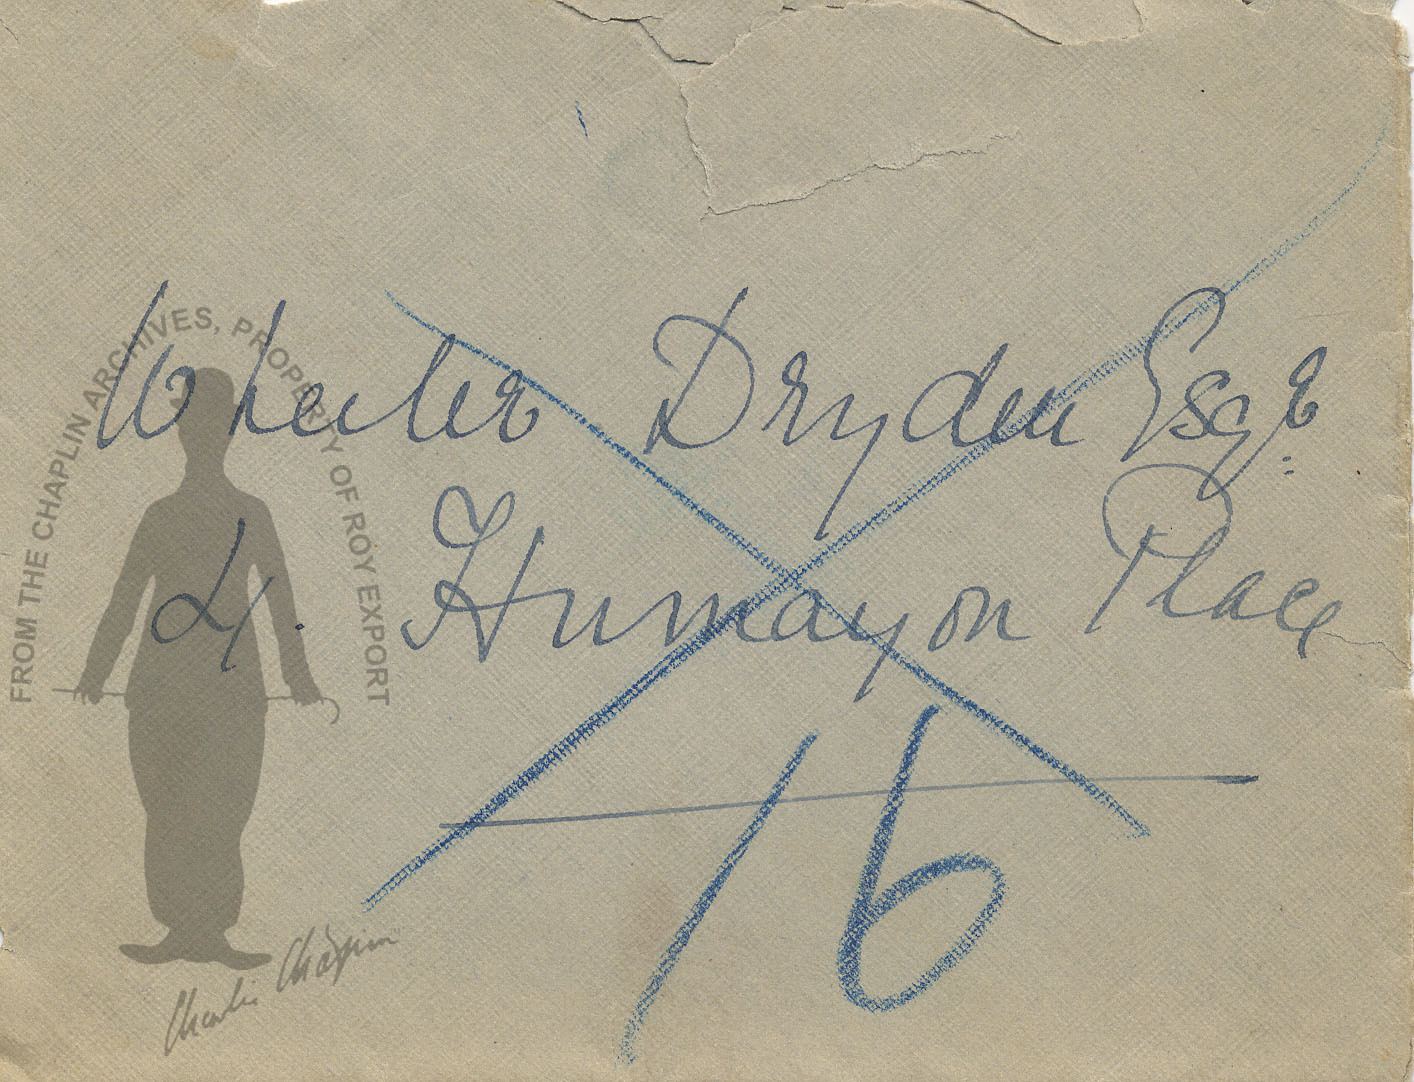 Wheeler Dryden Esqre
4. Humayon Place
16
FROM THE CHAPLIN ARCHIVES, PROPERTY OF ROY EXPORT
Charlie Chaplin